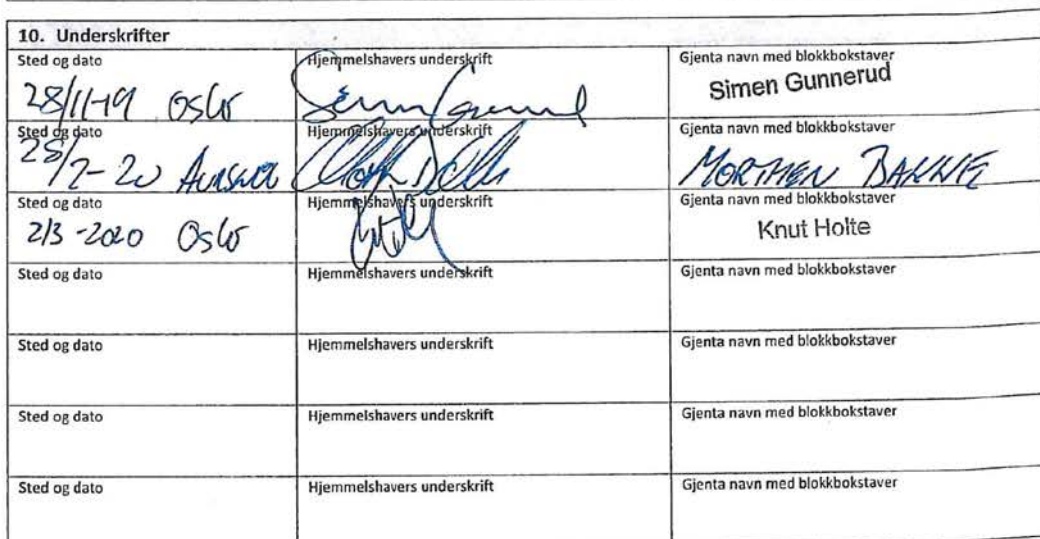 10. Underskrifter
Sted og dato Hjemmelshavers underskrift Gjenta navn med blokkbokstaver
28/11-19 Oslo Simen Gunnerud
Sted og dato Hjemmelshavers underskrift Gjenta navn med blokkbokstaver
28/2-20 MORTHEN BAKKE
Sted og dato Hjemmelshavers underskrift Gjenta navn med blokkbokstaver
2/3-2020 Oslo Knut Holte
Sted og dato Hjemmelshavers underskrift Gjenta navn med blokkbokstaver
Sted og dato Hjemmelshavers underskrift Gjenta navn med blokkbokstaver
Sted og dato Hjemmelshavers underskrift Gjenta navn med blokkbokstaver
Sted og dato Hjemmelshavers underskrift Gjenta navn med blokkbokstaver